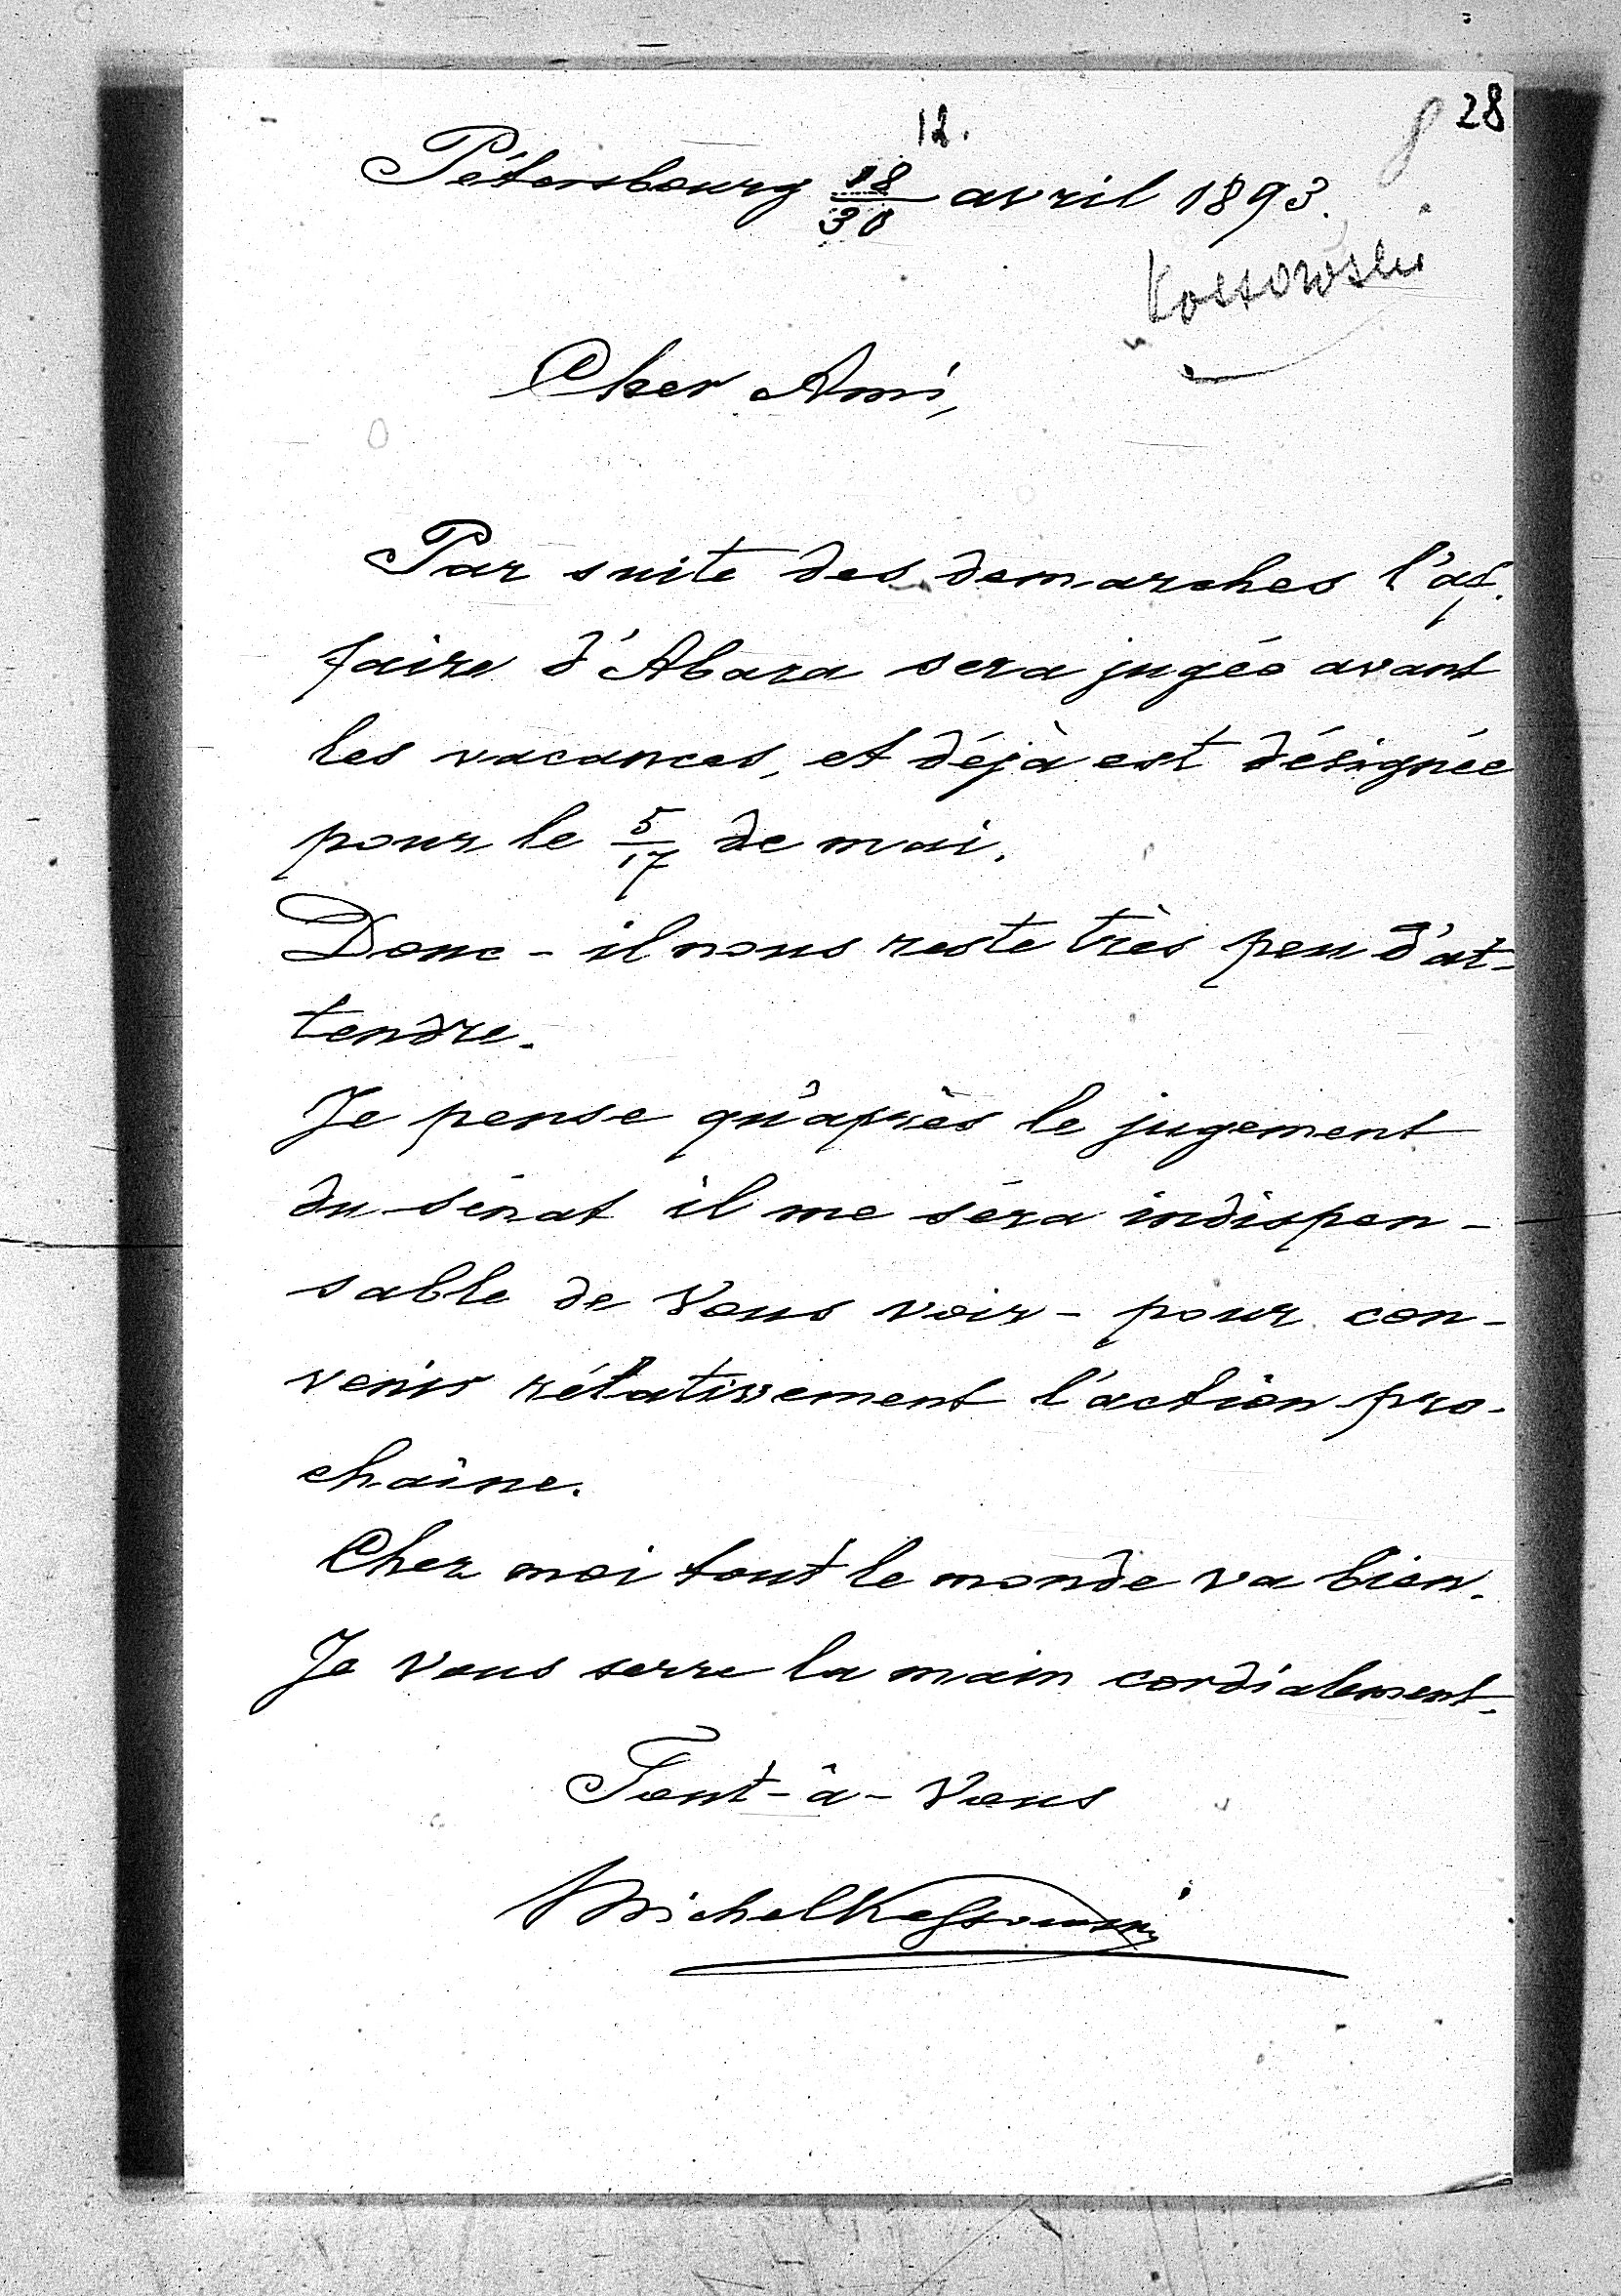 28
12.
8
Pétersbourg 18/30 avril 1893.
Kossowski
Cher Ami,
Par suite des demarches l'af-
faire d'Abaza sera jugée avant
les vacances, et déjà est désignée
pour le 5/17 de mai.
Donc - il nous reste très peu d'at-
tendre.
Je pense qu'après le jugement
du sénat il me séra indispen-
sable de Vous voir - pour con-
venir rélativement l'action pro-
chaine.
Chez moi tout le monde va bien.
Je Vous serre la main cordialement.
Tout-à-Vous
Michel Kossowski